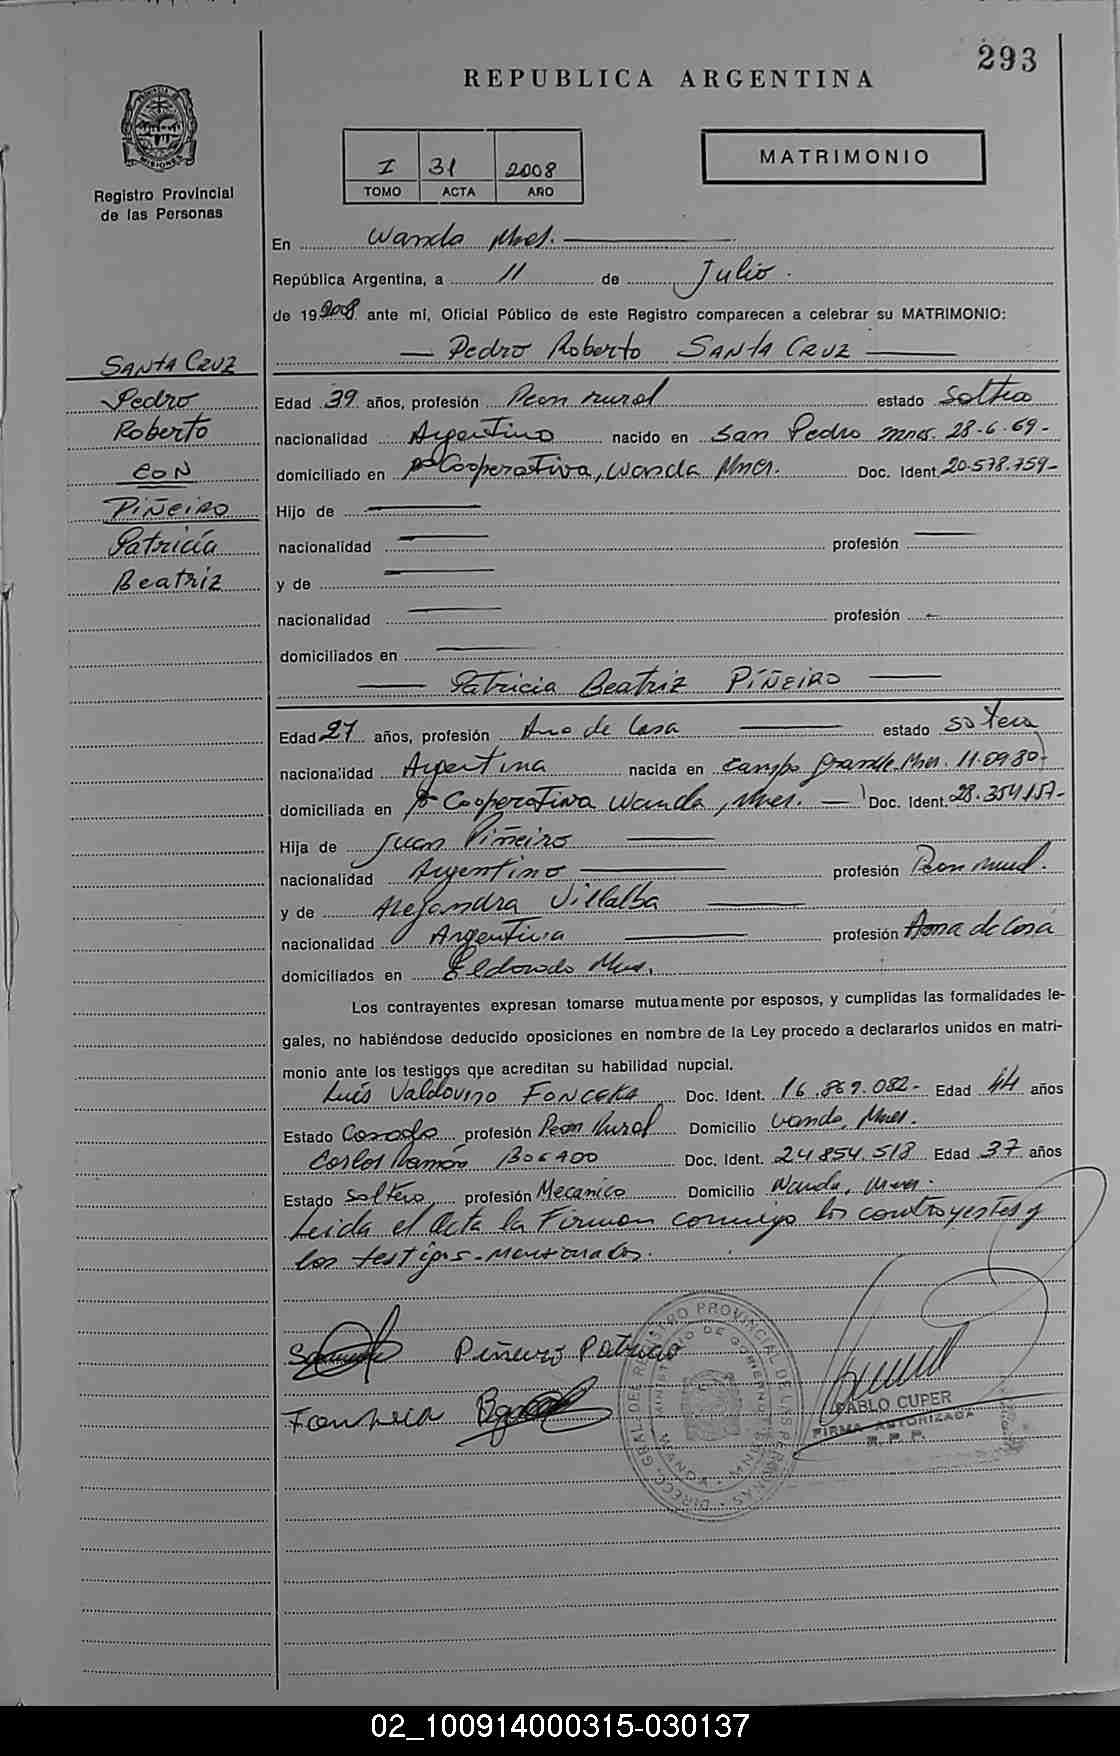 293
REPUBLICA ARGENTINA
Registro Provincial
de las Personas
I 31 2008
TOMO ACTA AÑO
MATRIMONIO
En Wanda Mnes.
República Argentina, a 11 de Julio.
de 19 2008 ante mí, Oficial Público de este Registro comparecen a celebrar su MATRIMONIO:
Pedro Roberto SANTA CRUZ
SANTA CRUZ
Pedro
Roberto
CON
PIÑEIRO
Patricia
Beatriz
Edad 39 años, profesión Peon rural estado soltero
nacionalidad Argentino nacido en San Pedro Mnes. 28-6-69-
domiciliado en Cooperativa, Wanda Mnes. Doc. Ident. 20.578.759-
Hijo de
nacionalidad profesión
y de
nacionalidad profesión
domiciliados en
Patricia Beatriz PIÑEIRO
Edad 27 años, profesión Ama de Casa estado soltera
nacionalidad Argentina nacida en Campo Grande Mnes. 11-09-80-
domiciliada en Cooperativa Wanda, Mnes. Doc. Ident. 28.354.157-
Hija de Juan Piñeiro
nacionalidad Argentino profesión Peon rural.
y de Alejandra Villalba
nacionalidad Argentina profesión Ama de Casa
domiciliados en Eldorado Mnes.
Los contrayentes expresan tomarse mutuamente por esposos, y cumplidas las formalidades le-
gales, no habiéndose deducido oposiciones en nombre de la Ley procedo a declararlos unidos en matri-
monio ante los testigos que acreditan su habilidad nupcial.
Luis Valdovino FONCEKA Doc. Ident. 16.869.082- Edad 44 años
Estado Casado profesión Peon Rural Domicilio Wanda, Mnes.
Carlos Ramón Doc. Ident. 24.854.518 Edad 37 años
Estado soltero profesión Mecanico Domicilio Wanda, Mnes.
Leida el Acta la Firman conmigo los contrayentes y
los testigos mencionados.
Piñeiro Patricia
Fonseca
DIRECC. GRAL. DEL REGISTRO PROVINCIAL DE LAS PERSONAS
MINISTERIO DE GOBIERNO
WANDA
PABLO CUPER
FIRMA AUTORIZADA
R. P. P.
02_100914000315-030137